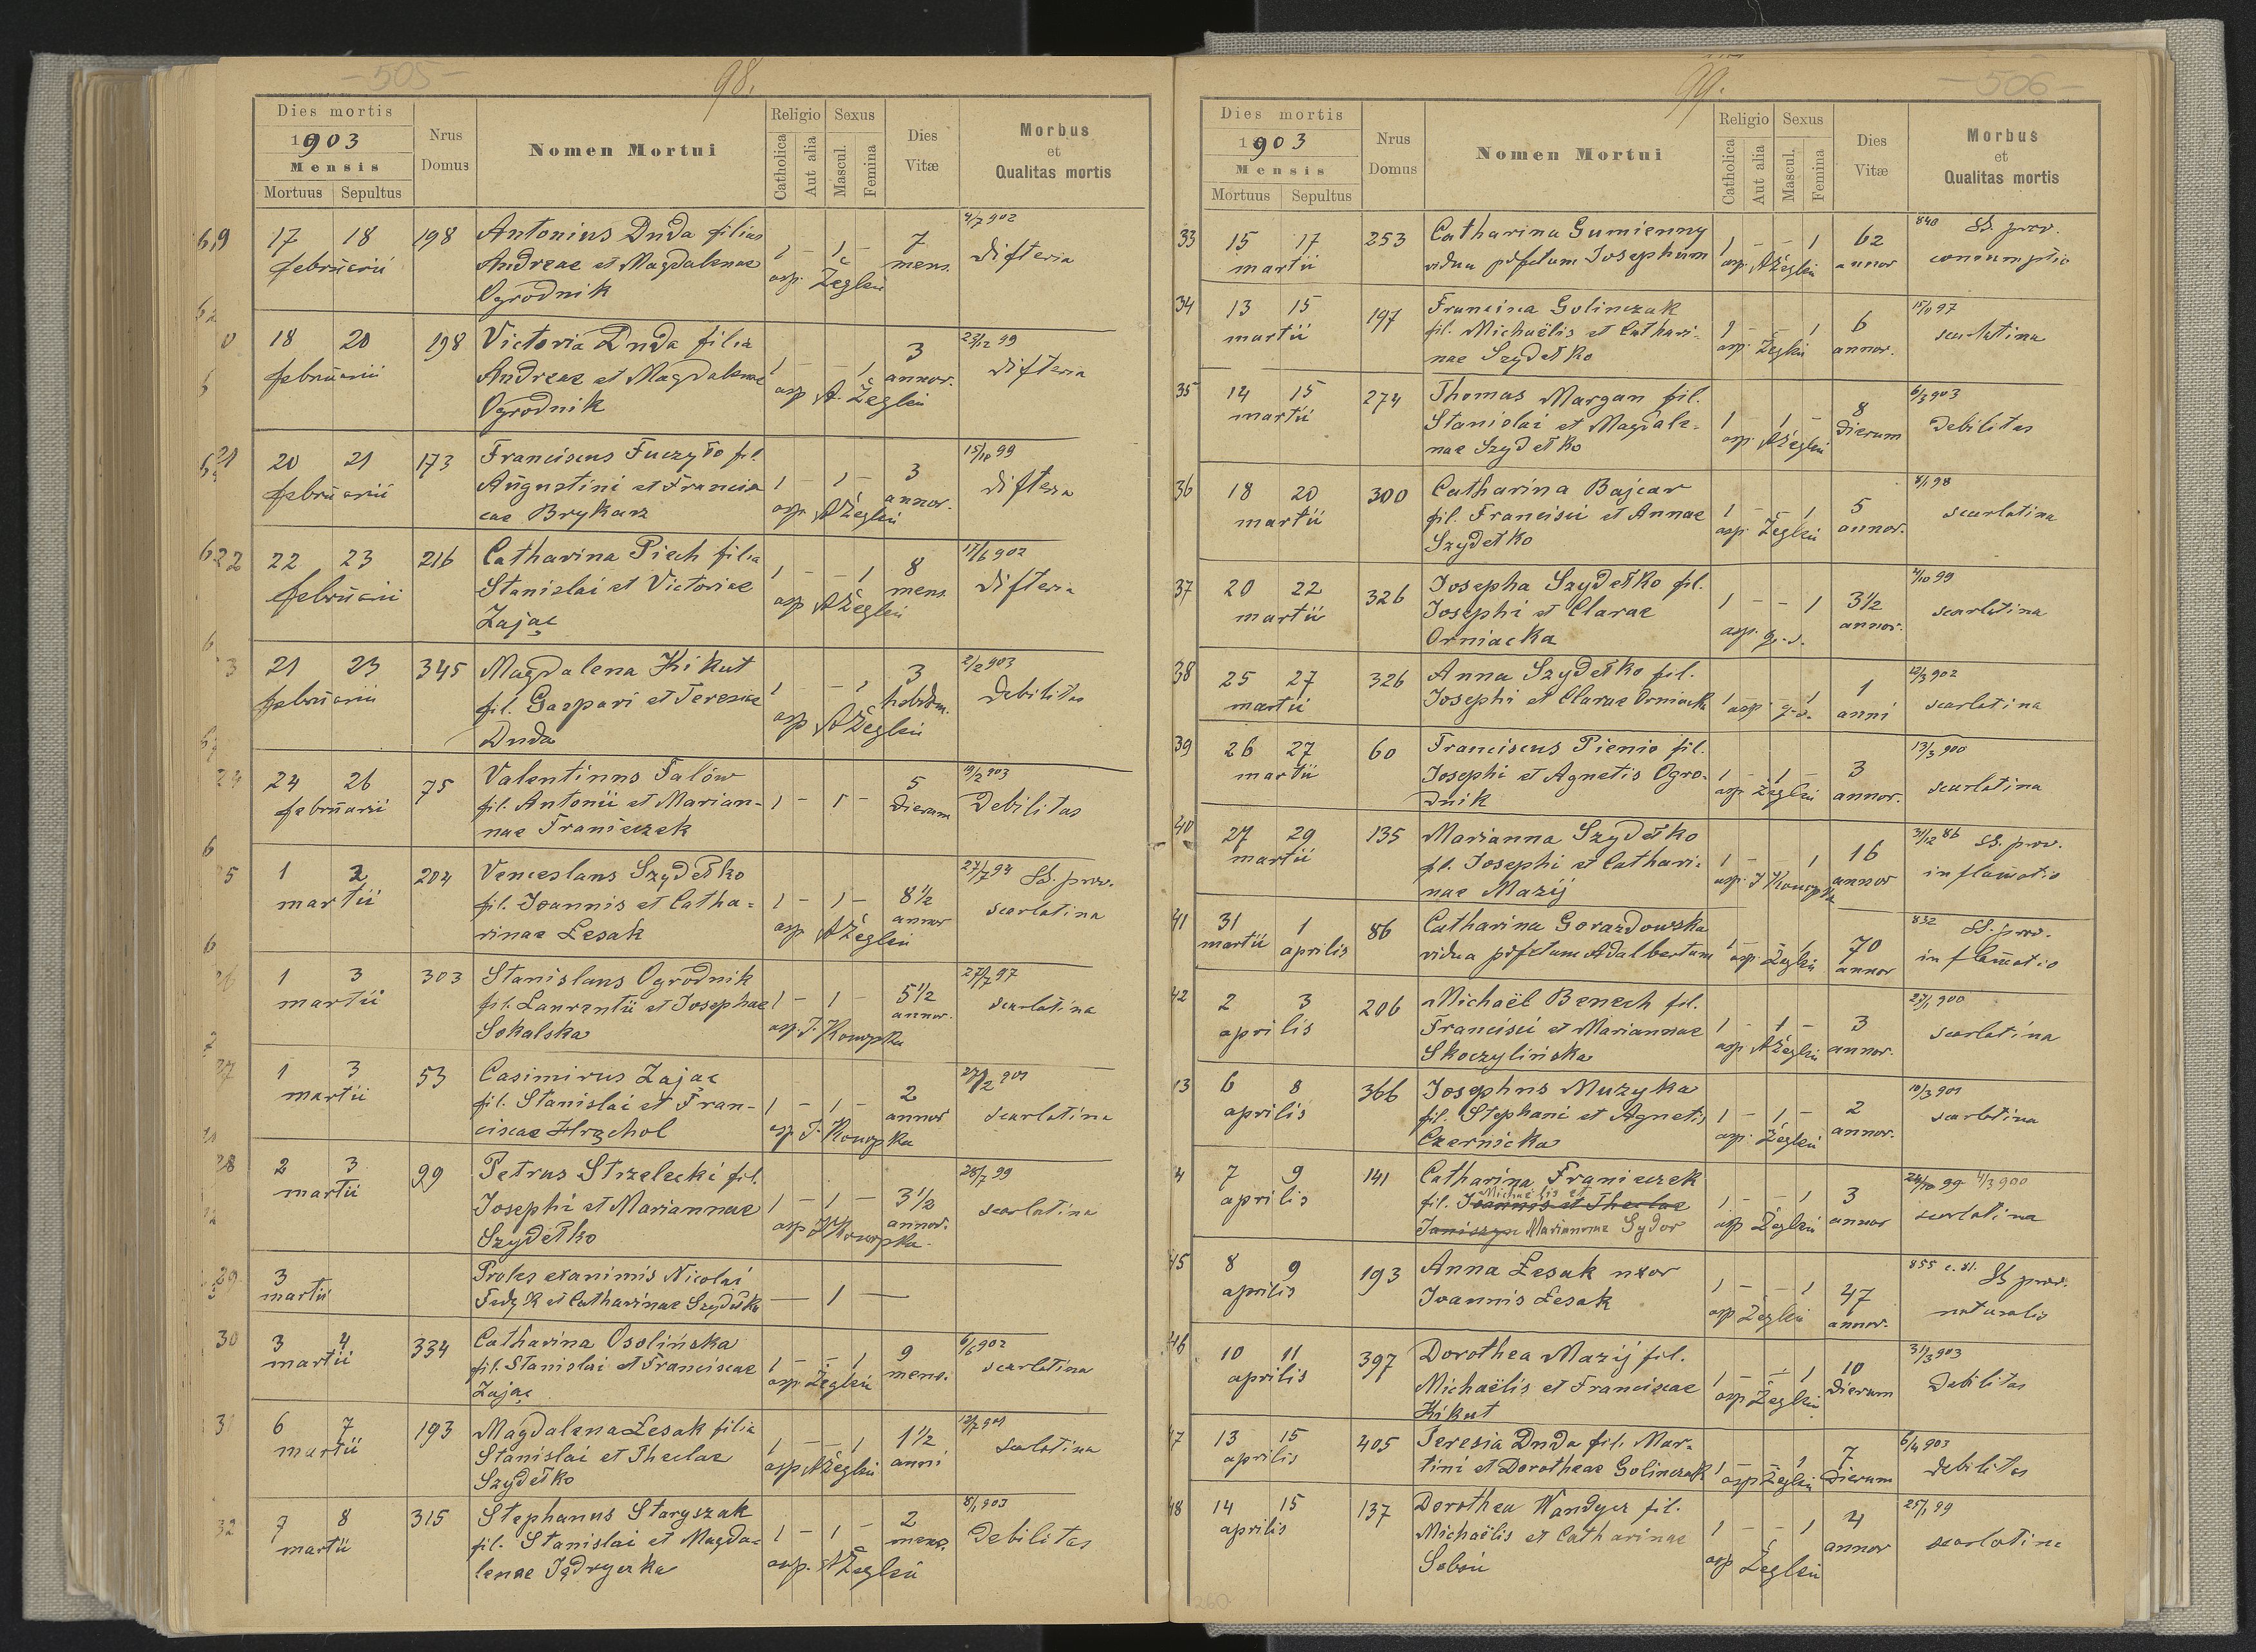 - 505 -
98.
Dies mortis
1903
Mensis
Mortuus Sepultus
Nrus Domus
Nomen Mortui
Religio
Catholica
Aut alia
Sexus
Mascul.
Femina
Dies Vitæ
Morbus
et
Qualitas mortis
19 17 18 198 Antonius Duda filius 4/7 902
februarii Andreae et Magdalenae 1 - 1 - 7 mens. difteria
Ogrodnik asp. Żeglin
18 20 198 Victoria Duda filia 23/12 99
februarii Andreae et Magdalenae 1 - - 1 3 annor. difteria
Ogrodnik asp A. Żeglin
21 20 21 173 Franciscus Fuczyło fil. 15/10 99
februarii Augustini et Francis 1 - 1 - 3 annor. difteria
cae Brykarz asp. A Żeglin
22 22 23 216 Catharina Piech filia 17/6 902
februarii Stanislai et Victoriae 1 - - 1 8 mens. difteria
Zając asp A Żeglin
3 21 23 345 Magdalena Kikut 2/2 903
februarii fil. Gaspari et Teresiae 1 - 1 3 hebdom. debilitas
Duda asp A Żeglin
24 24 26 75 Valentinus Falów 19/2 903
februarii fil. Antonii et Marian- 1 - 1 - 5 dierum Debilitas
nae Franiczek
25 1 2 204 Venceslaus Szydełko 27/7 94 SS. prov.
martii fil. Joannis et Catha- 1 - 1 - 8 1/2 annor scarlatina
rinae Lesak asp A Żeglin
26 1 3 303 Stanislaus Ogrodnik 27/7 97
martii fil. Laurentii et Josephae 1 - 1 - 5 1/2 annor. scarlatina
Sokalska asp. J. Konopka
27 1 3 53 Casimirus Zając 27/2 901
martii fil. Stanislai et Fran- 1 - 1 - 2 annor scarlatina
ciscae Hrzchol asp J. Konopka
28 2 3 99 Petrus Strzelecki fil. 28/7 99
martii Josephi et Mariannae 1 - 1 - 3 1/2 annor. scarlatina
Szydełko asp J Konopka
29 3 Proles exanimis Nicolai
martii Fedyk et Catharinae Szydełko — 1 —
30 3 4 334 Catharina Osolińska 6/6 902
martii fil. Stanislai et Franciscae 1 - - 1 9 mens. scarlatina
Zając asp. Żeglin
31 6 7 193 Magdalena Lesak filia 12/7 901
martii Stanislai et Theclae 1 - 1 1 1/2 anni scarlatina
Szydełko asp A Żeglin
32 7 8 315 Stephanus Staryszak 8/1 903
martii fil. Stanislai et Magda- 1 - 1 - 2 mens. Debilitas
lenae Jędryczka asp. A Żeglin
99.
- 506 -
Dies mortis
1903
Mensis
Mortuus Sepultus
Nrus Domus
Nomen Mortui
Religio
Catholica
Aut alia
Sexus
Mascul.
Femina
Dies Vitæ
Morbus
et
Qualitas mortis
33 15 17 253 Catharina Gumienny 840 SS. prov.
martii vidua p. defctum Josephum 1 - - 1 62 annor consumptio
asp. A Żeglin
34 13 15 197 Francisca Golinczak 15/10 97
martii fil. Michaëlis et Cathari- 1 - - 1 6 annor. scarlatina
nae Szydełko asp. Żeglin
35 14 15 274 Thomas Margan fil. 6/3 903
martii Stanislai et Magdale- 1 - 1 - 8 dierum Debilitas
nae Szydełko asp. A Żeglin
36 18 20 300 Catharina Bajcar 8/1 98
martii fil. Francisci et Annae 1 - - 1 5 annor. scarlatina
Szydełko asp. Żeglin
37 20 22 326 Josepha Szydełko fil. 4/10 99
martii Josephi et Clarae 1 - - 1 3 1/2 annor. scarlatina
Orniacka asp. q.-s.
38 25 27 326 Anna Szydełko fil. 12/3 902
martii Josephi et Clarae Orniacka 1 - - 1 1 anni scarlatina
asp. q.-s.
39 26 27 60 Franciscus Pienio fil. 13/3 900
martii Josephi et Agnetis Ogro- 1 - 1 - 3 annor. scarlatina
dnik asp Żeglin
40 27 29 135 Marianna Szydełko 31/12 86 SS. prov.
martii fil. Josephi et Cathari- 1 - - 1 16 annor inflamatio
nae Mazij asp. J Konopka
41 31 martii 1 aprilis 86 Catharina Gorazdowska 832 SS. prov.
vidua p. defctum Adalbertum 1 - - 1 70 annor inflamatio
asp. Żeglin
42 2 3 206 Michaël Benech fil. 27/1 900
aprilis Francisci et Mariannae 1 - 1 - 3 annor. scarlatina
Skoczylińska asp A Żeglin
13 6 8 366 Josephus Muzyka 19/3 901
aprilis fil. Stephani et Agnetis 1 - 1 - 2 annor. scarlatina
Czernicka asp. Żeglin
4 7 9 141 Catharina Franiczek 24/10 99 4/3 900
Michaelis et
aprilis fil. Joannis et Theclae 1 - - 1 3 annor scarlatina
Janiszyn Mariannae Sydor asp Żeglin
45 8 9 193 Anna Lesak uxor 855 c. st. SS prov.
aprilis Joannis Lesak 1 - - 1 47 annor. naturalis
asp Żeglin
46 10 11 397 Dorothea Mazij fil. 31/3 903
aprilis Michaëlis et Franciscae 1 - - 1 10 dierum Debilitas
Kikut asp Żeglin
17 13 15 405 Teresia Duda fil. Mar- 6/4 903
aprilis tini et Dorotheae Golinczak 1 - - 1 7 dierum debilitas
asp Żeglin
48 14 15 137 Dorothea Wandycz fil. 25/1 99
aprilis Michaëlis et Catharinae 1 - - 1 4 annor scarlatina
Soboń asp Żeglin
260